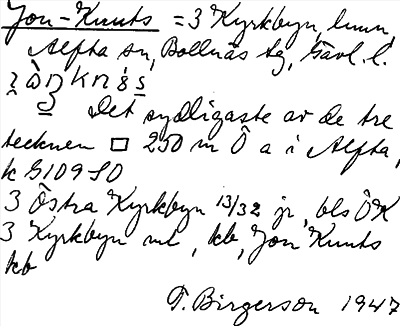 Jon-Knuts = 3 Kyrkbyn, hmn,
Alfta sn, Bollnäs tg, Gävl. l.
Det sydligaste av de tre
tecknen □ 250 m Ö a i Alfta,
k G109 SO
3 Östra Kyrkbyn 13/32 jr, bls ÖK
3 Kyrkbyn ml, kb, Jon Knuts
kb
T. Birgerson 1947